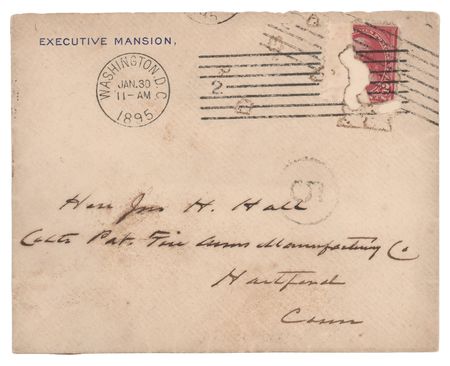 EXECUTIVE MANSION,
WASHINGTON, D.C.
JAN. 30
11-AM
1895
2
5
Hon Jno H. Hall
Colts Pat. Fire Arms Manufacturing Co
Hartford
Conn